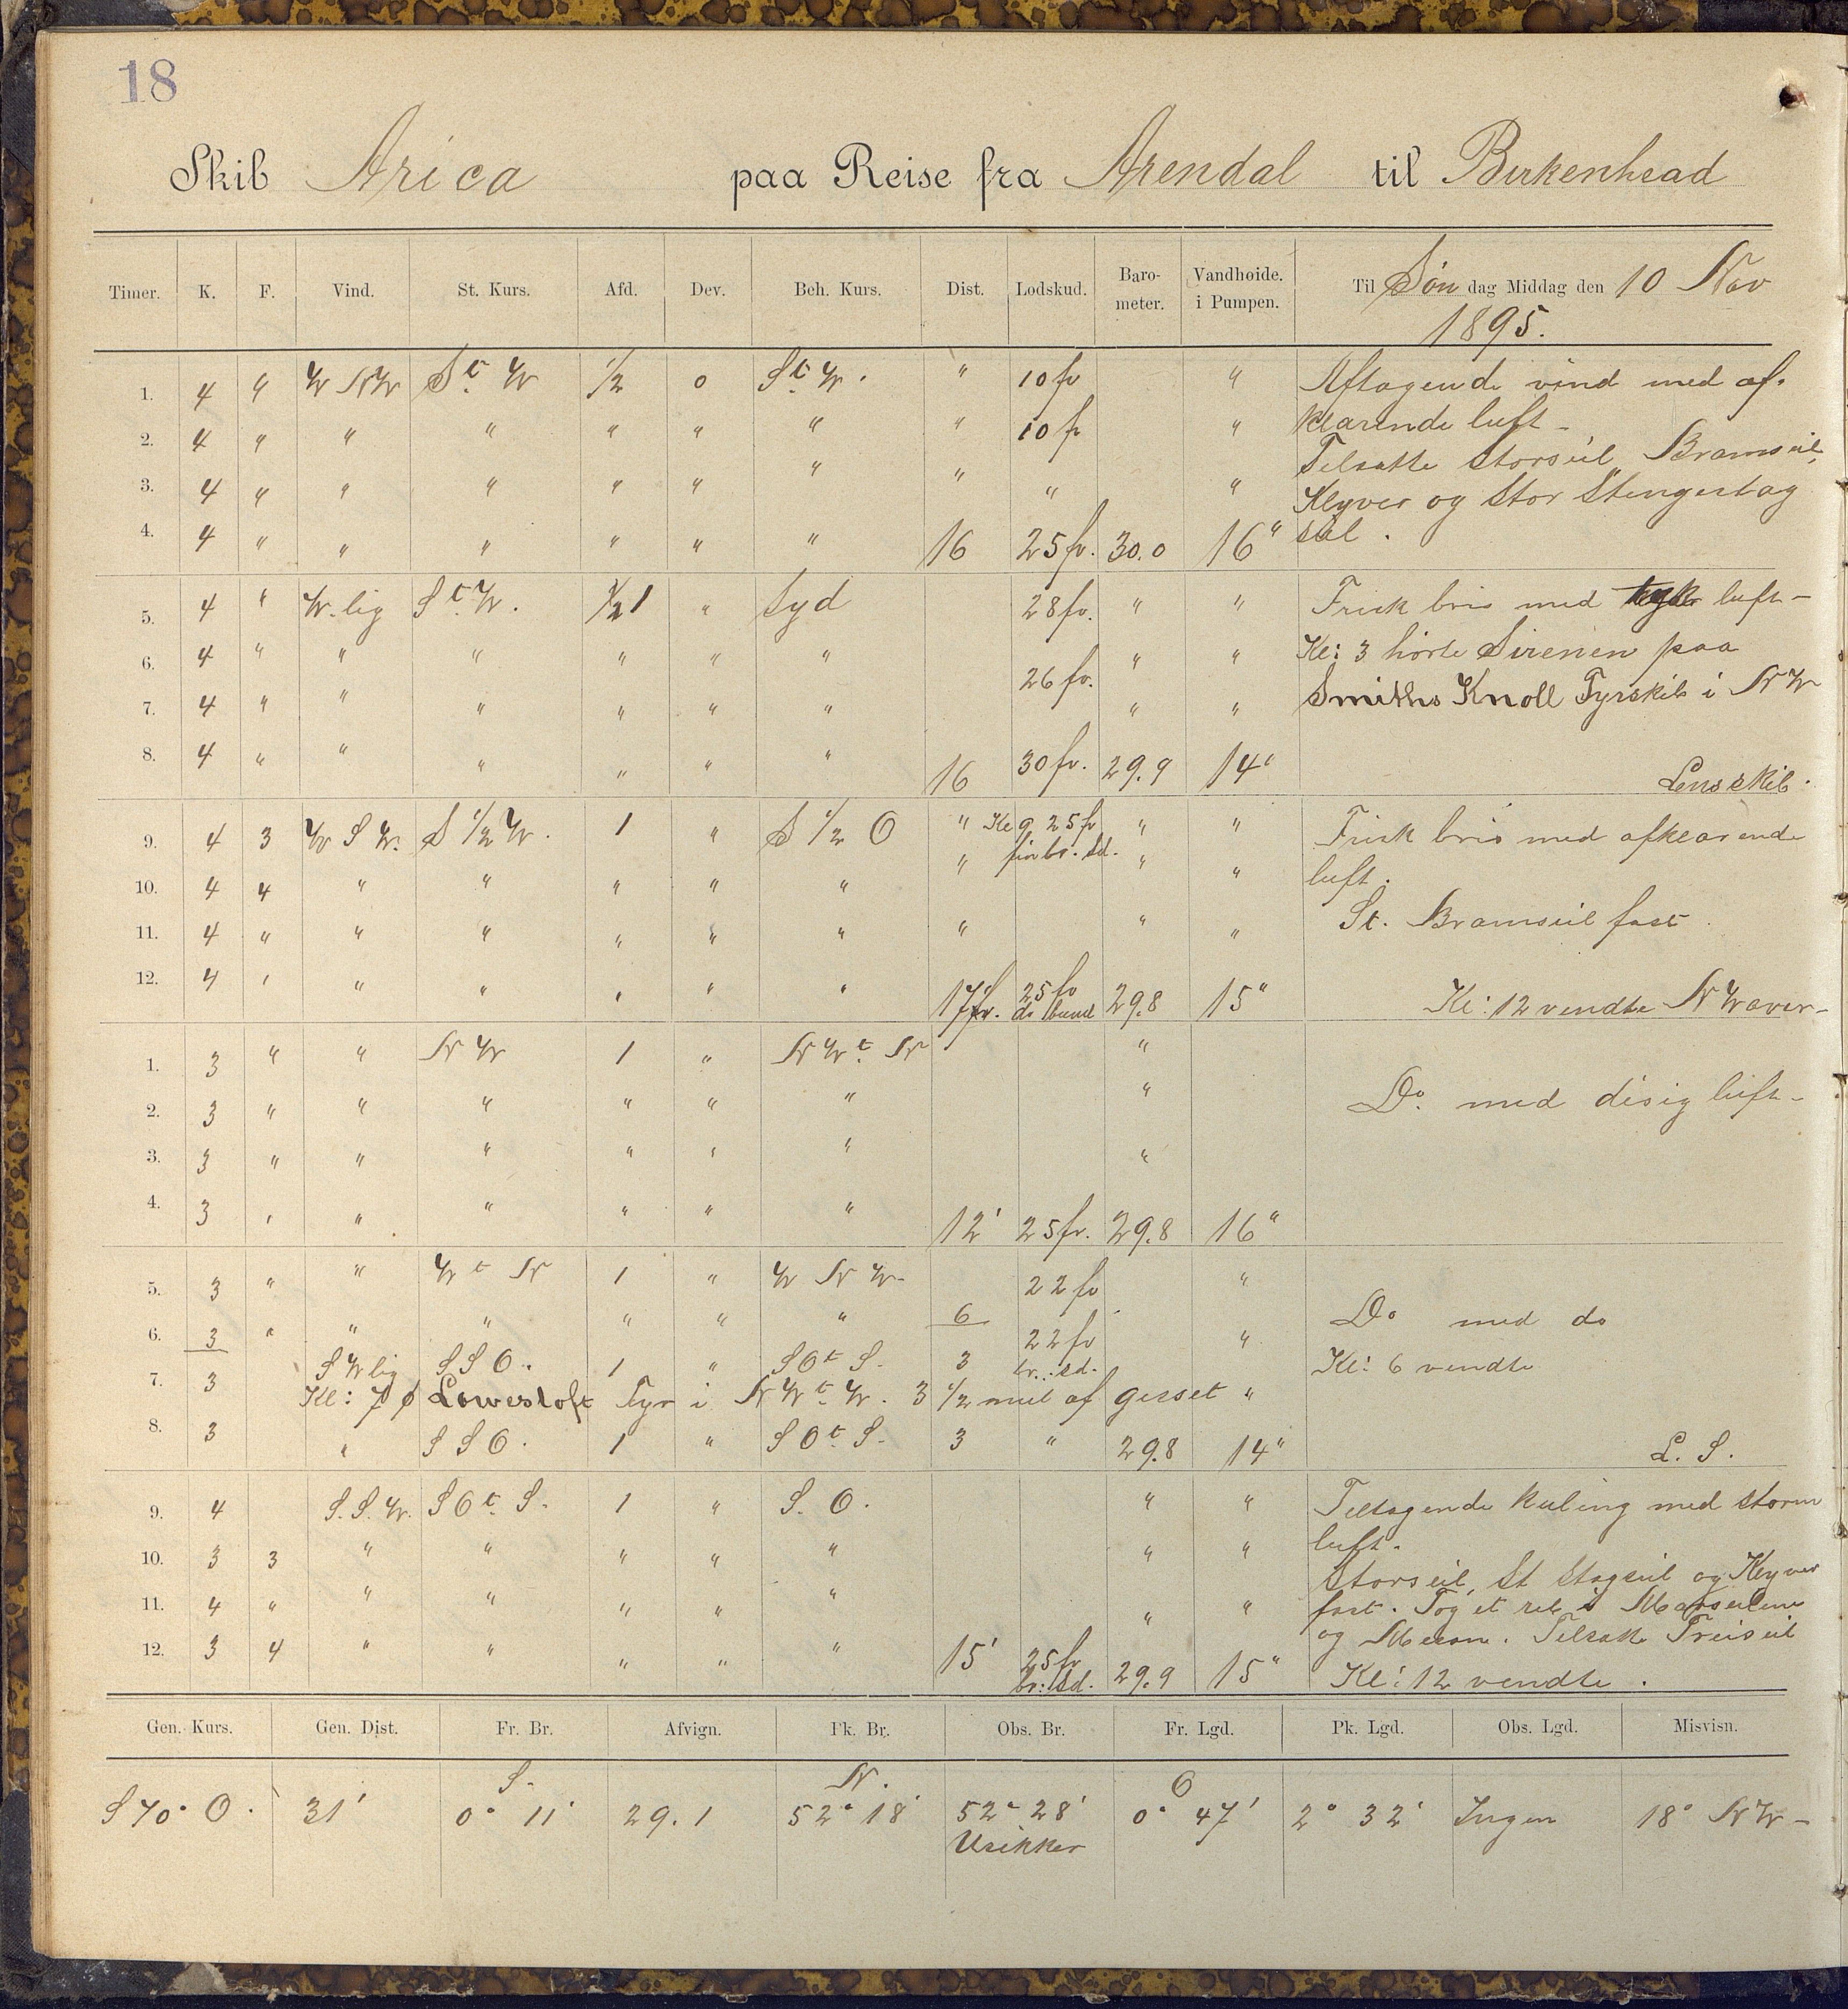 18
Skib Arica paa Reise fra Arendal til Birkenhead
Timer. K. F. Vind. St. Kurs. Afd. Dev. Beh. Kurs. Dist. Lodskud. Baro-meter. Vandhøide. i Pumpen. Til Søn dag Middag den 10 Nov
1895.
1. 4 " W NW St. W 1/2 0 St. W. " 10 fv " Aftagende vind med af-
2. 4 " " " " " " " 10 fv " klarende luft -
Tilsatte Storseil Bramseil,
3. 4 " " " " " " " " " Klyver og Stor Stengestag
4. 4 " " " " " " 16 25 fv. 30.0 16" seil.
5. 4 " W. lig St. W. 1 " Syd 28 fv. " " Frisk bris med luft -
6. 4 " " " " " " " " Kl: 3 hørte Sirenen paa
26 fv.
7. 4 " " " " " " " " Smiths Knoll Fyrskib i NW
8. 4 " " " " " " 16 30 fv. 29.9 14"
Lens skib.
9. 4 3 W S W. S 1/2 W. 1 " S 1/2 O " Kl 9 25 fv " " Frisk bris med afklarende
fin br. sd.
10. 4 4 " " " " " " " " luft.
11. 4 " " " " " " " " " St. Bramseil fast
12. 4 " " " " " " 17 25 fv do bund 29.8 15" Kl: 12 vendte NW over -
1. 3 " " NW 1 " NWt. N "
2. 3 " " " " " " " Do. med disig luft -
3. 3 " " " " " " "
4. 3 " " " " " " 12' 25 fv. 29.8 16"
5. 3 " " Wt N 1 " W N W- 22 fv "
6. 3 " " " " " " 6 22 fv " Do med do
br. sd.
7. 3 SW lig SSO. 1 " SOt S. 3 Kl: 6 vendte
Kl: 7 Lowestoft Fyr i NWt. W. 3 1/2 mil af gisset "
8. 3 " SSO. 1 " SOt. S. 3 " 29.8 14" L. S.
9. 4 S.S.W. SOt. S. 1 " S. O. " " Tiltagende kuling med storm
10. 3 3 " " " " " " " luft.
Storseil, St Stagseil og Klyver
11. 4 " " " " " " " " fast. Tog et reb i Mærseilene
og Mesan. Tilsatte Treiseil
12. 3 4 " " " " " 15' 25 fv br: sd. 29.9 15" Kl: 12 vendte.
Gen. Kurs. Gen. Dist. Fr. Br. Afvign. Pk. Br. Obs. Br. Fr. Lgd. Pk. Lgd. Obs. Lgd. Misvisn.
S. N. O
S 70° O. 31' 0° 11' 29.1 52° 18' 52° 28' 0° 47' 2° 32' Ingen 18° NW -
Usikker